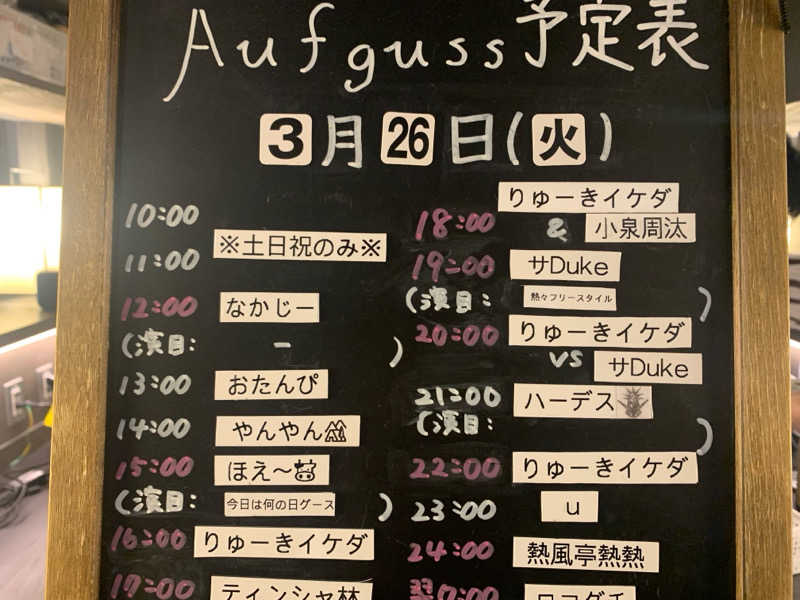 Aufguss予定表
3月26日(火)
10:00
11:00 ※土日祝のみ※
12:00 なかじー
(演目: ー )
13:00 おたんぴ
14:00 やんやん
15:00 ほえ〜
(演目: 今日は何の日グース )
16:00 りゅーきイケダ
17:00 ティンシャ林
りゅーきイケダ
18:00 & 小泉周汰
19:00 サDuke
(演目: 熱々フリースタイル )
20:00 りゅーきイケダ
vs サDuke
21:00 ハーデス
(演目: )
22:00 りゅーきイケダ
23:00 u
24:00 熱風亭熱熱
翌7:00 ロコダチ